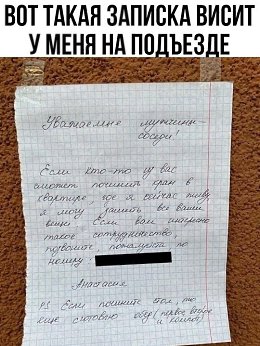 ВОТ ТАКАЯ ЗАПИСКА ВИСИТ
У МЕНЯ НА ПОДЪЕЗДЕ
Уважаемые мужчины-
соседи!
Если кто-то из вас
сможет починить кран в
квартире, где я сейчас живу,
я могу зашить все ваши
вещи. Если вам интересно
такое сотрудничество,
позвоните, пожалуйста по
номеру:
Анастасия.
P.S Если почините пол, то
еще сготовлю обед (первое, второе
и компот)